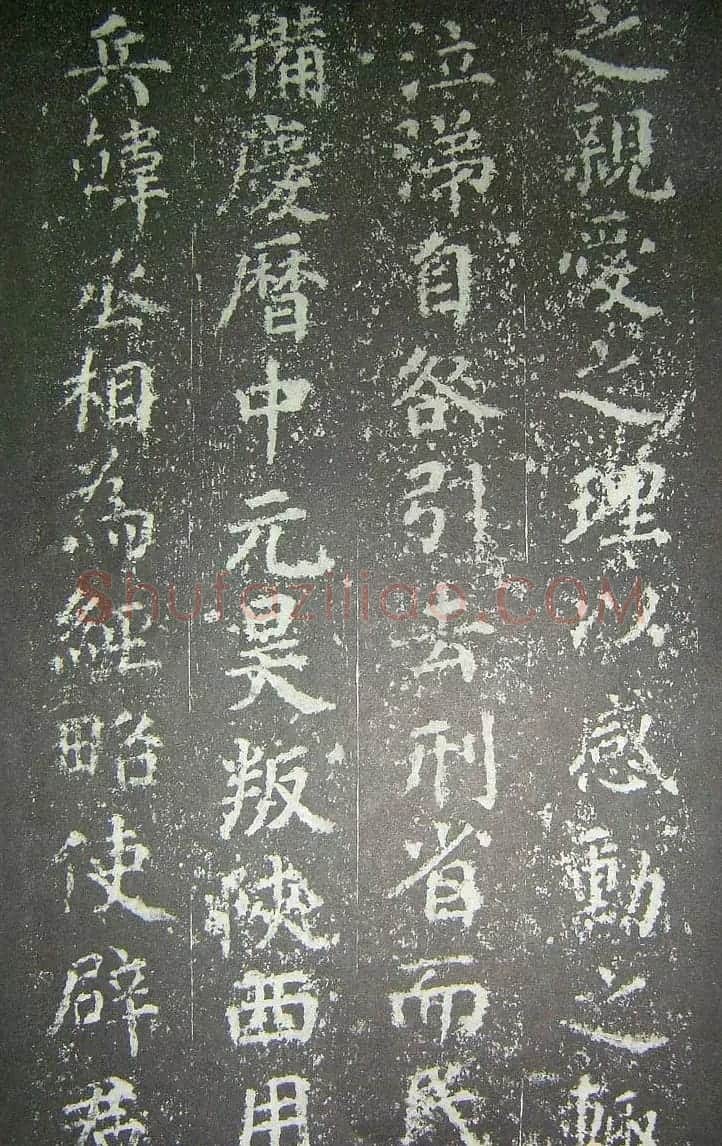 之親愛之理以感動之輒
泣涕自咎引去刑省而民
犕慶曆中元昊叛陝西用
兵韓公相為經略使辟君
Shufaziliao.COM